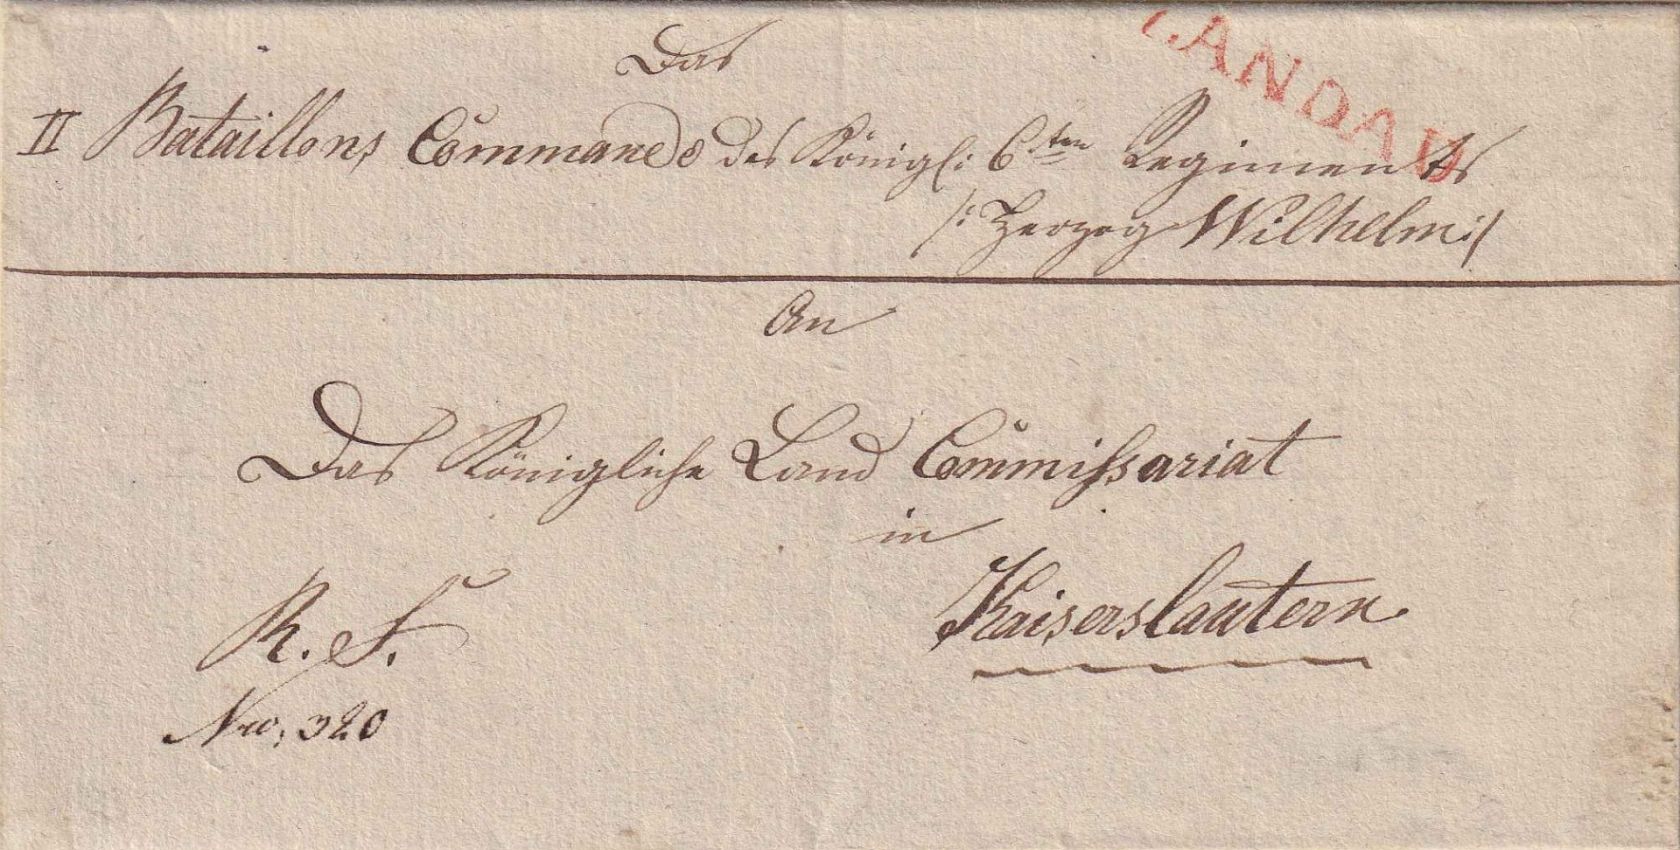 LANDAU
Das
II Bataillons Commando des Königl: 6ten Regiments
/: Herzog Wilhelm :/
An
Das Königliche Land Commissariat
in
Kaiserslautern
R. S.
Nro, 320